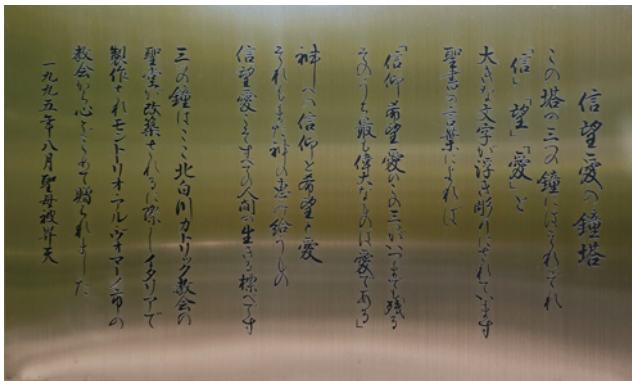 信望愛の鐘塔
この塔の三つの鐘にはそれぞれ
「信」「望」「愛」と
大きな文字が浮き彫りにされています
聖書の言葉によれば
「信仰希望愛この三ついつまでも残る
そのうち最も偉大なものは愛である」
神への信仰と希望と愛
それもまた神の恵み給うもの
信望愛こそすべての人間の生きる標べです
三つの鐘はここ北白川カトリック教会の
聖堂が改築されるに際しイタリアで
製作されモンテリオ・アル・ヴォマーノ市の
教会から心をこめて贈られました
一九九五年八月聖母被昇天